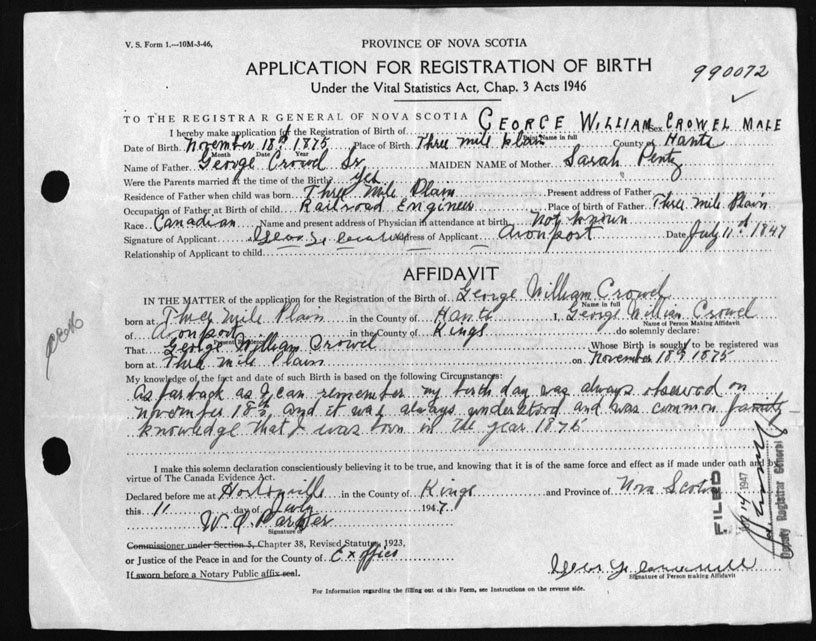 V. S. Form 1.—10M-3-46,
PROVINCE OF NOVA SCOTIA
APPLICATION FOR REGISTRATION OF BIRTH
Under the Vital Statistics Act, Chap. 3 Acts 1946
990072
TO THE REGISTRAR GENERAL OF NOVA SCOTIA
I hereby make application for the Registration of Birth of GEORGE WILLIAM CROWEL Sex MALE
Print Name in full
Date of Birth November 18th 1875 Place of Birth Three mile plain County of Hants
Month Date Year
Name of Father George Crowel Sr MAIDEN NAME of Mother Sarah Pentz
Were the Parents married at the time of the Birth? Yes
Residence of Father when child was born Three Mile Plain Present address of Father
Occupation of Father at Birth of child Railroad Engineer Place of birth of Father Three mile Plain
Race Canadian Name and present address of Physician in attendance at birth Not known
Signature of Applicant Address of Applicant Avonport Date July 11th 1847
Relationship of Applicant to child
AFFIDAVIT
IN THE MATTER of the application for the Registration of the Birth of George William Crowel
Name in full
born at Three mile Plain in the County of Hants I, George William Crowel
Name of Person Making Affidavit
of Avonport in the County of Kings do solemnly declare:
Present Residence
That George William Crowel Whose Birth is sought to be registered was
born at Three mile Plain on November 18th 1875
My knowledge of the fact and date of such Birth is based on the following Circumstances:
As far back as I can remember my birth day was always observed on
November 18th, and it was always understood and was common family
knowledge that I was born in the year 1875
I make this solemn declaration conscientiously believing it to be true, and knowing that it is of the same force and effect as if made under oath and by
virtue of The Canada Evidence Act.
Declared before me at Hortonville in the County of Kings and Province of Nova Scotia
this 11 day of July 1947.
Signature of
Commissioner under Section 5, Chapter 38, Revised Statutes, 1923,
or Justice of the Peace in and for the County of Ex officio
If sworn before a Notary Public affix seal.
Signature of Person making Affidavit
For Information regarding the filling out of this Form, see Instructions on the reverse side.
FILED
14 1947
Deputy Registrar General